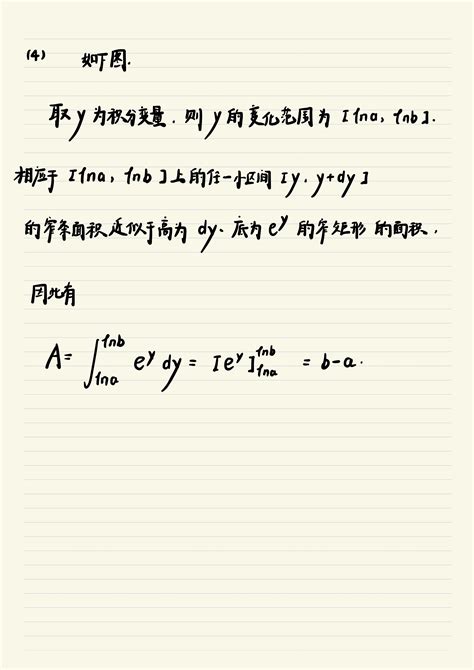 (4) 如下图.
取y为积分变量,则y的变化范围为[lna, lnb].
相应于[lna, lnb]上的任一小区间[y, y+dy]
的窄条面积近似于高为dy、底为e^y的窄矩形的面积,
因此有
A=∫_{lna}^{lnb} e^y dy = [e^y]_{lna}^{lnb} = b-a.